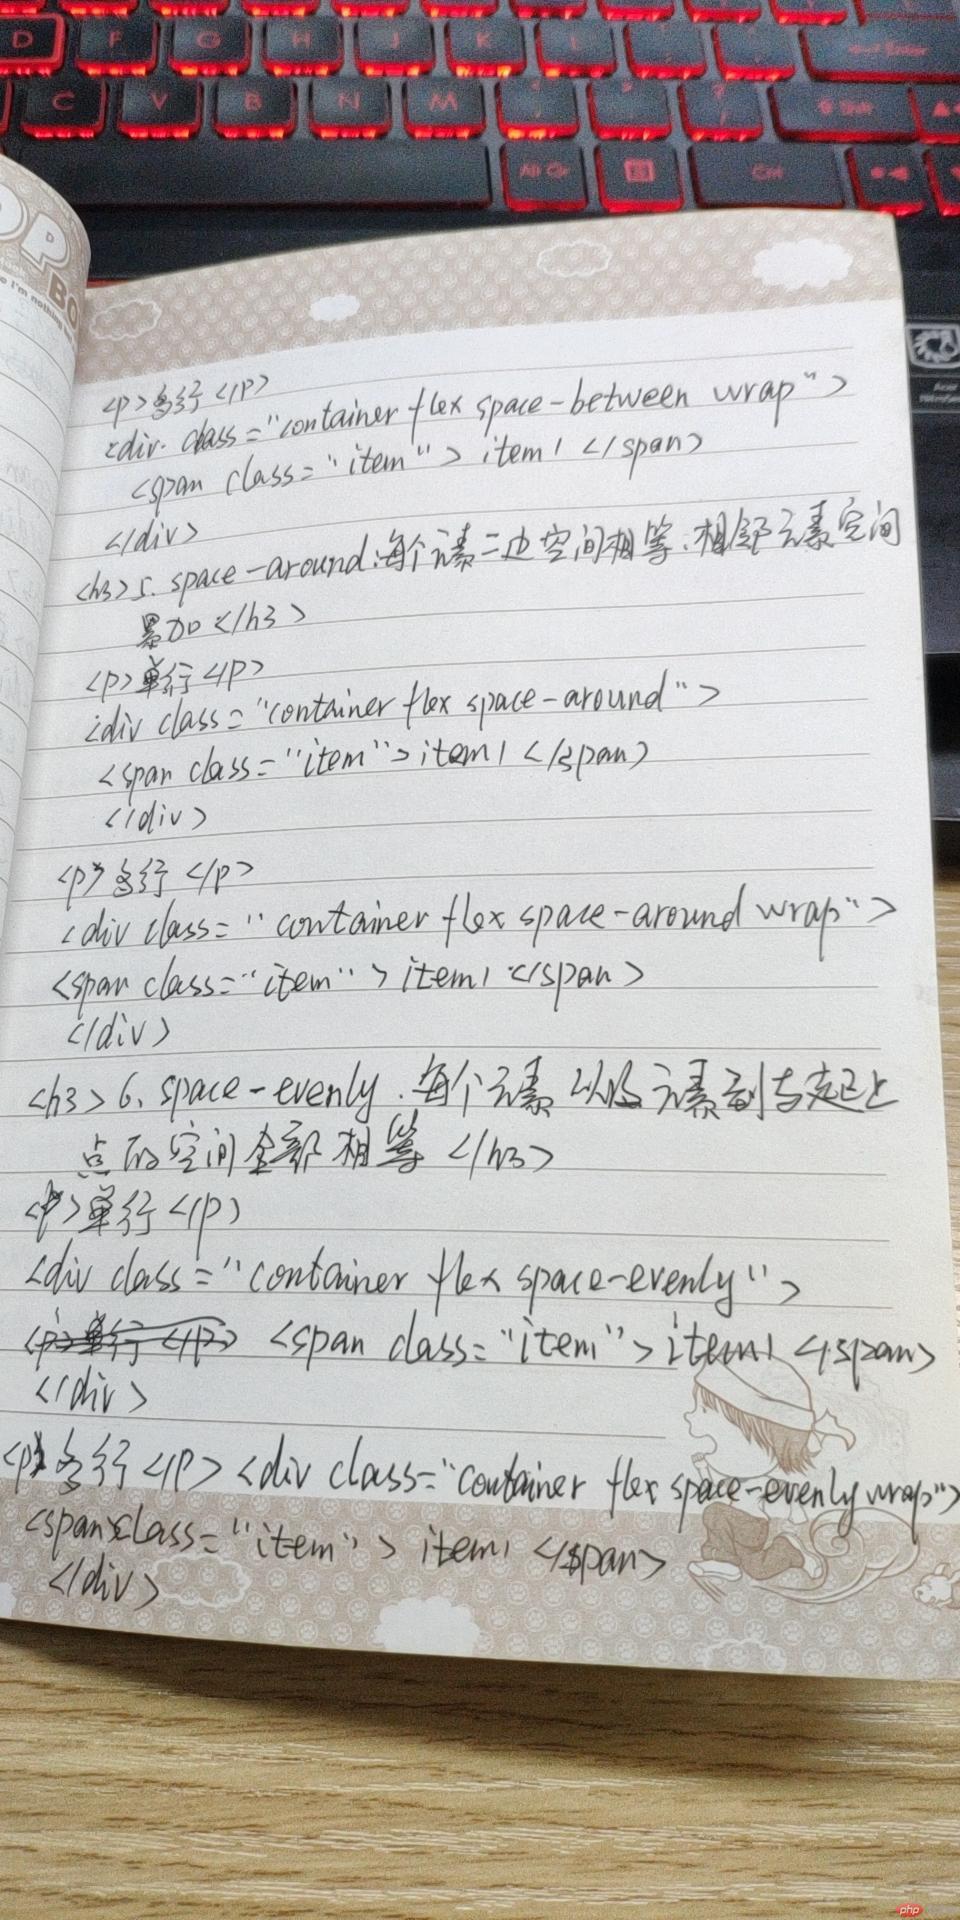 D F G H J K L Enter
C V B N M Shift
Alt Gr Ctrl
OP
BO
e i'm nothing
Acer
<p>多行</p>
<div class="container flex space-between wrap">
<span class="item">item1</span>
</div>
<h3>5、space-around:每个元素二边空间相等、相邻元素空间
累加</h3>
<p>单行</p>
<div class="container flex space-around">
<span class="item">item1</span>
</div>
<p>多行</p>
<div class="container flex space-around wrap">
<span class="item">item1</span>
</div>
<h3>6、space-evenly、每个元素以及元素到与起止
点的空间全部相等</h3>
<p>单行</p>
<div class="container flex space-evenly">
<p>单行</p> <span class="item">item1</span>
</div>
<p>多行</p><div class="container flex space-evenly wrap">
<span class="item">item1</span>
</div>
php